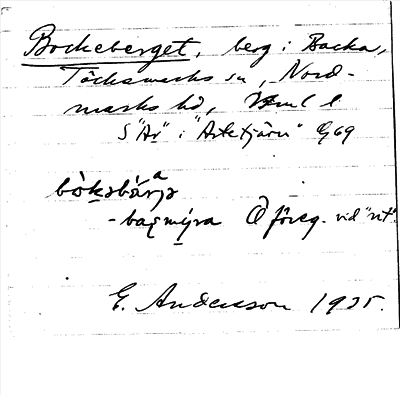 Bockeberget, berg i Backa,
Töcksmarks sn, Nord-
marks hd, Vrml l
S "Ar" i "Artetjärn" G69
bòkəbárjə
a
-bagmyra Ö föreg. vid "rit"
E. Andersson 1935.